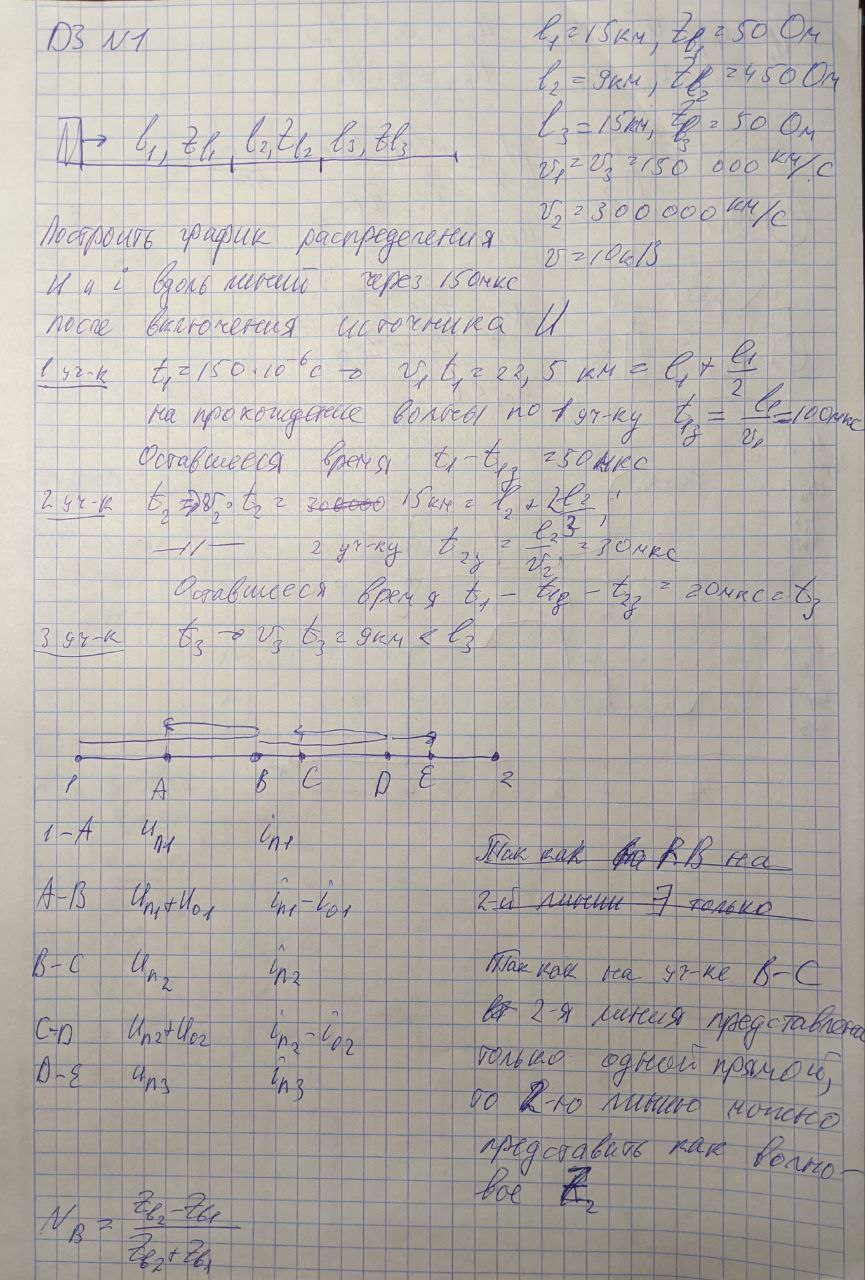 ДЗ N1
l₁ = 15км, Zв₁ = 50 Ом
l₂ = 9км, Zв₂ = 450 Ом
l₃ = 15км, Zв₃ = 50 Ом
v₁ = v₃ = 150 000 км/с
v₂ = 300 000 км/с
v = 10кВ
И → l₁, Zв₁, l₂, Zв₂ l₃, Zв₃
Построить график распределения
И и i вдоль линий через 150мкс
после включения источника И
1 уч-к t₁ = 150·10⁻⁶с → v₁t₁ = 22,5 км = l₁ + l₁/2
на прохождение волны по 1 уч-ку t₁з = l₁/v₁ = 100мкс
Оставшееся время t₁ - t₁з = 50мкс
2 уч-к t₂ → v₂·t₂ = 15км = l₂ + 2l₂/3;
—//— 2 уч-ку t₂з = l₂/v₂ = 30мкс
Оставшееся время t₁ - t₁з - t₂з = 20мкс = t₃
3 уч-к t₃ → v₃ t₃ = 9км < l₃
1 A B C D E 2
1-A uп1 iп1
A-B uп1+uо1 iп1-iо1
B-C uп2 iп2
C-D uп2+uо2 iп2-iо2
D-E uп3 iп3
Так как на
2-й линии ∃ только
Так как на уч-ке B-C
2-я линия представлена
только одной прямой,
то 2-ю линию можно
представить как волно-
вое Z₂
N_B = (Zв₂ - Zв₁)/(Zв₂ + Zв₁)